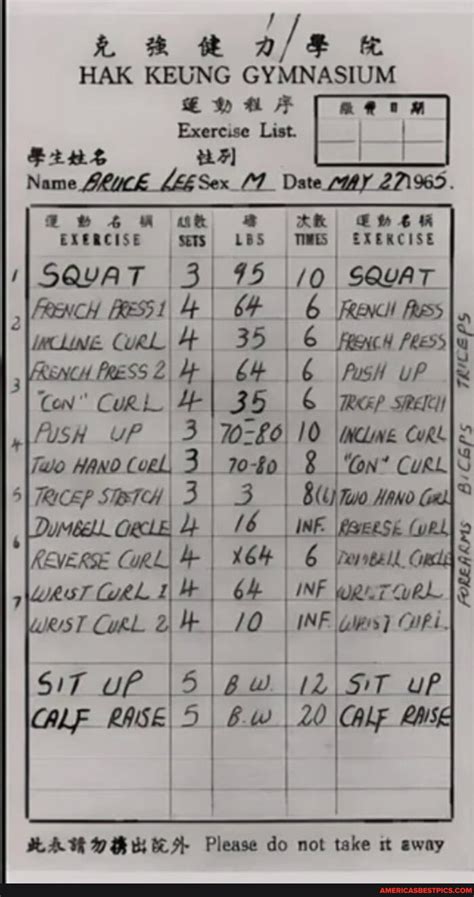 克強健力學院
HAK KEUNG GYMNASIUM
運動程序
Exercise List.
繳費日期
學生姓名 性別
Name BRUCE LEE Sex M Date MAY 27 1965.
運動名稱 組數 磅 次數 運動名稱
EXERCISE SETS LBS TIMES EXERCISE
1 SQUAT 3 95 10 SQUAT
2 FRENCH PRESS 1 4 64 6 FRENCH PRESS
INCLINE CURL 4 35 6 FRENCH PRESS
3 FRENCH PRESS 2 4 64 6 PUSH UP
"CON" CURL 4 35 6 TRICEP STRETCH
4 PUSH UP 3 70-80 10 INCLINE CURL
TWO HAND CURL 3 70-80 8 "CON" CURL
5 TRICEP STRETCH 3 3 TWO HAND CURL
6 DUMBELL CIRCLE 4 16 INF. REVERSE CURL
REVERSE CURL 4 X64 6 DUMBELL CIRCLE
7 WRIST CURL 1 4 64 INF WRIST CURL
WRIST CURL 2 4 10 INF WRIST CURL
SIT UP 5 B.W. 12 SIT UP
CALF RAISE 5 B.W 20 CALF RAISE
TRICEPS
BICEPS
FOREARMS
此表請勿携出院外 Please do not take it away
AMERICASBESTPICS.COM